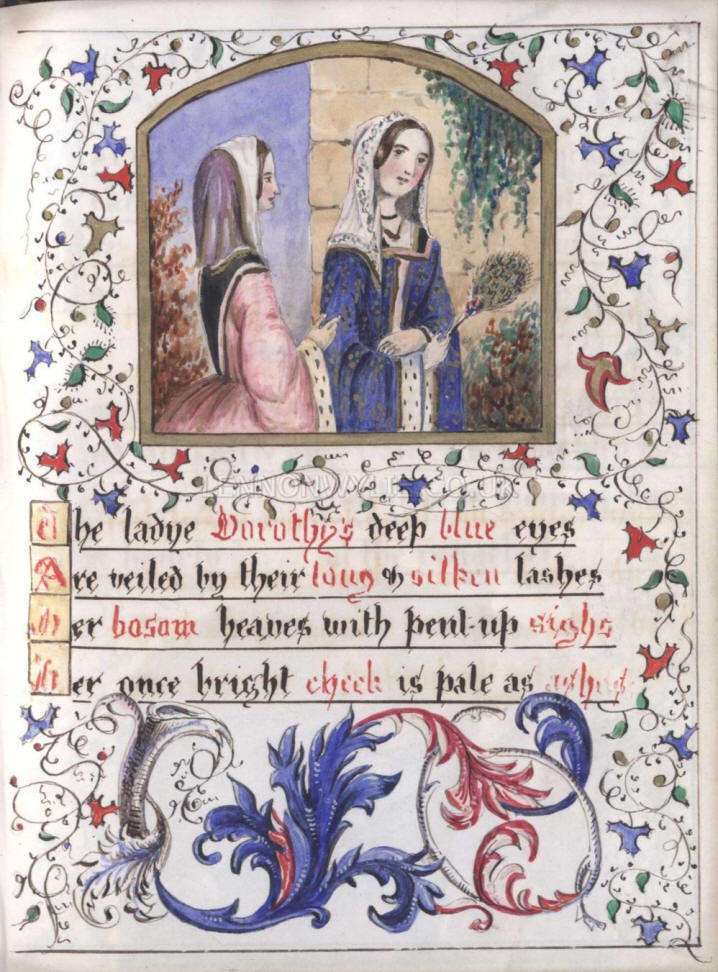 LENNONWYLIE.CO.UK
The ladye Dorothy's deep blue eyes
Are veiled by their long & silken lashes
Her bosom heaves with pent-up sighs
Her once bright cheek is pale as ashes